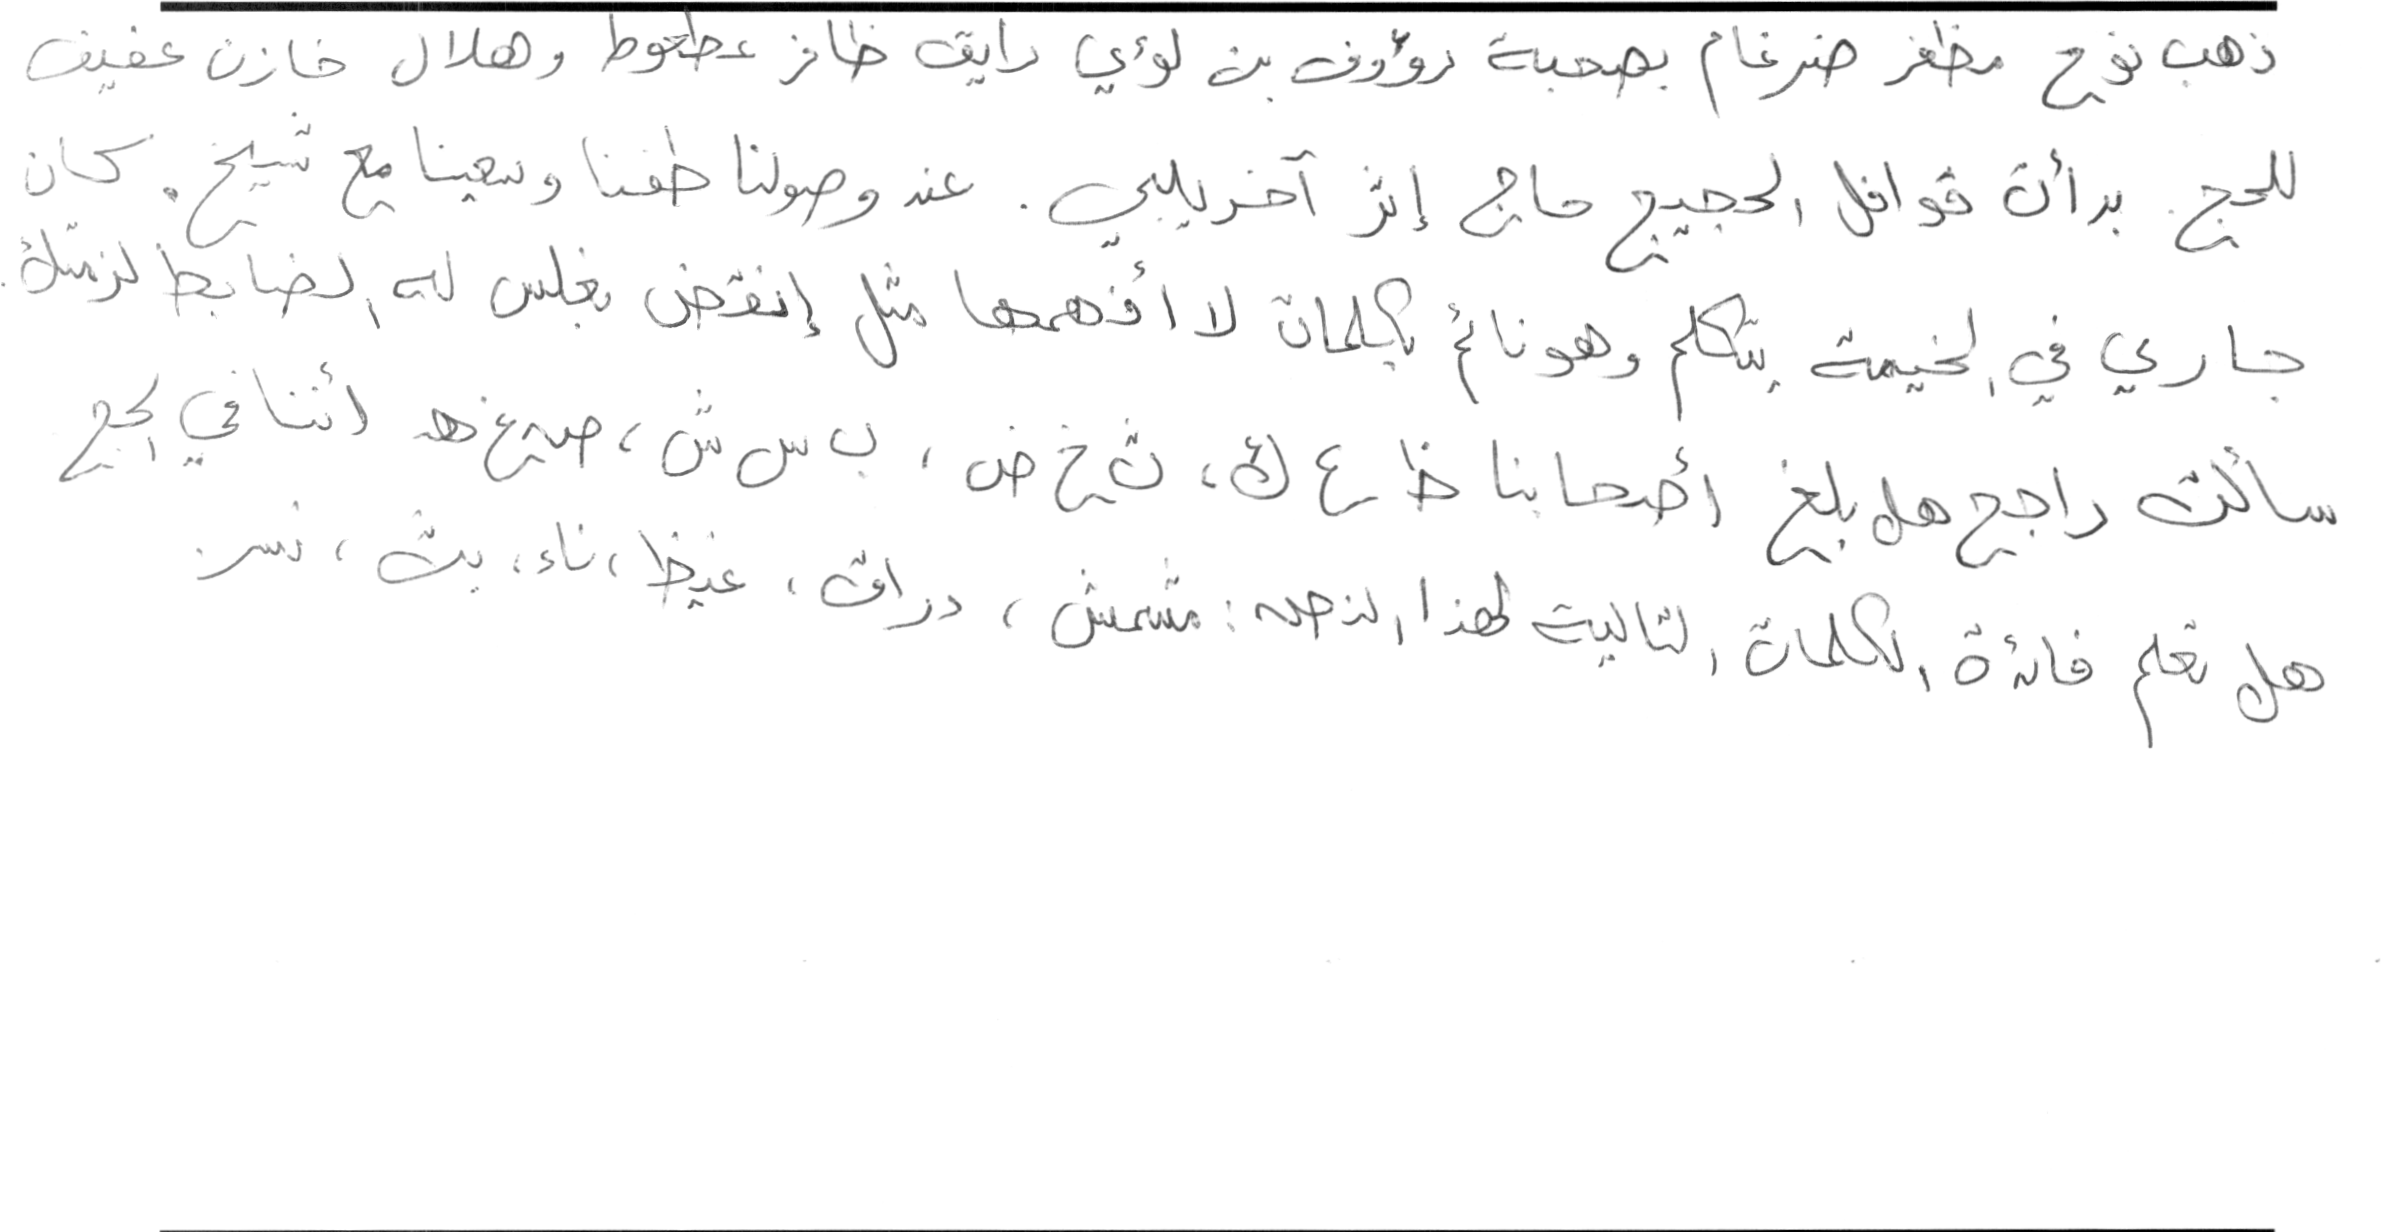 ذهب نوح مظفر ضرغام بصحبة رؤوف بن لؤي رايق ظافر عطعوط وهلال خازن عفيف
للحج. بدأت قوافل الحجيج حاج إثر آخر يلبي. عند وصولنا طفنا وسعينا مع شيخ. كان
جاري في الخيمة يتكلم وهو نائم بكلمات لا أفهمها مثل إنقض بغلس له الضابط لزمتك.
سألت راجح هل بلغ أصحابنا ظ ع ك، ث خ ض، ب س ش، ص غ هـ أننا في الحج
هل تعلم فائدة الكلمات التالية لهذا النص: مشمش، دراق، غيظ، ناء، بث، نسر